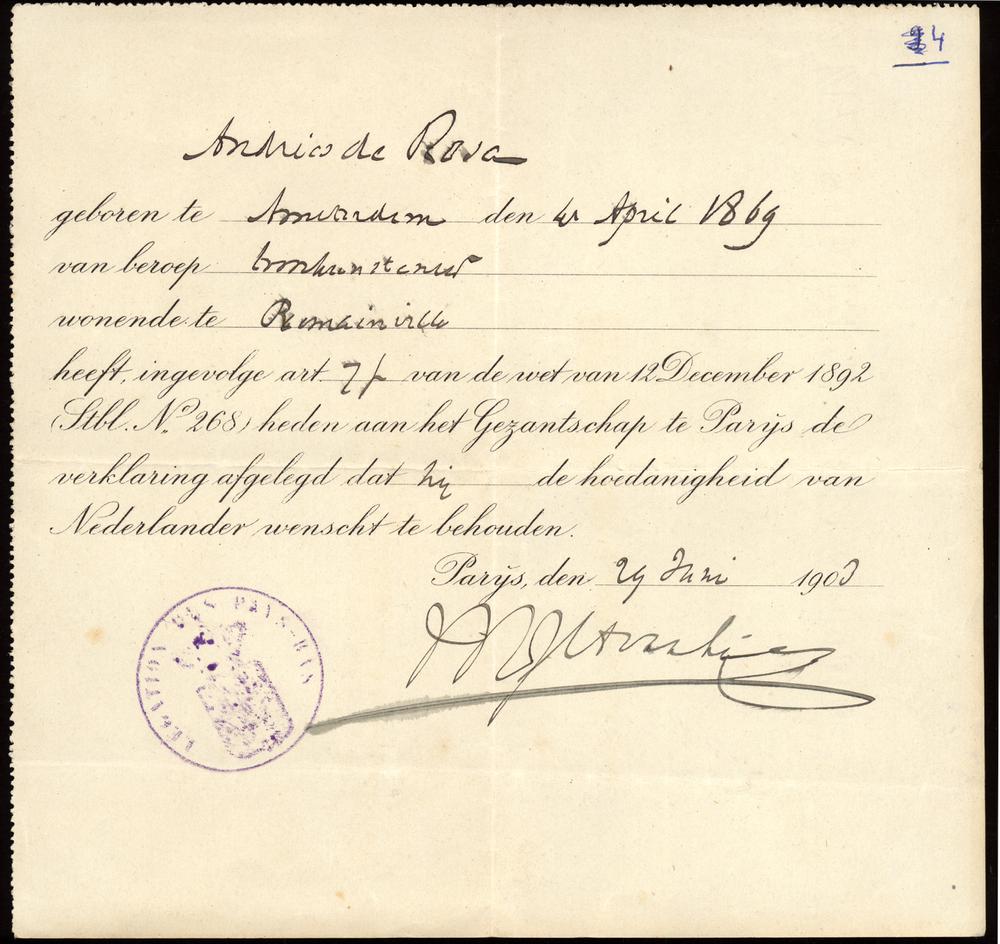 4
Andries de Rosa
geboren te Amsterdam den 4 April 1869
van beroep toonkunstenaar
wonende te Romainville
heeft, ingevolge art. 7/ van de wet van 12 December 1892
(Stbl. No. 268) heden aan het Gezantschap te Parijs de
verklaring afgelegd dat hij de hoedanigheid van
Nederlander wenscht te behouden.
Parijs, den 29 Juni 1903
LEGATION DES PAYS-BAS